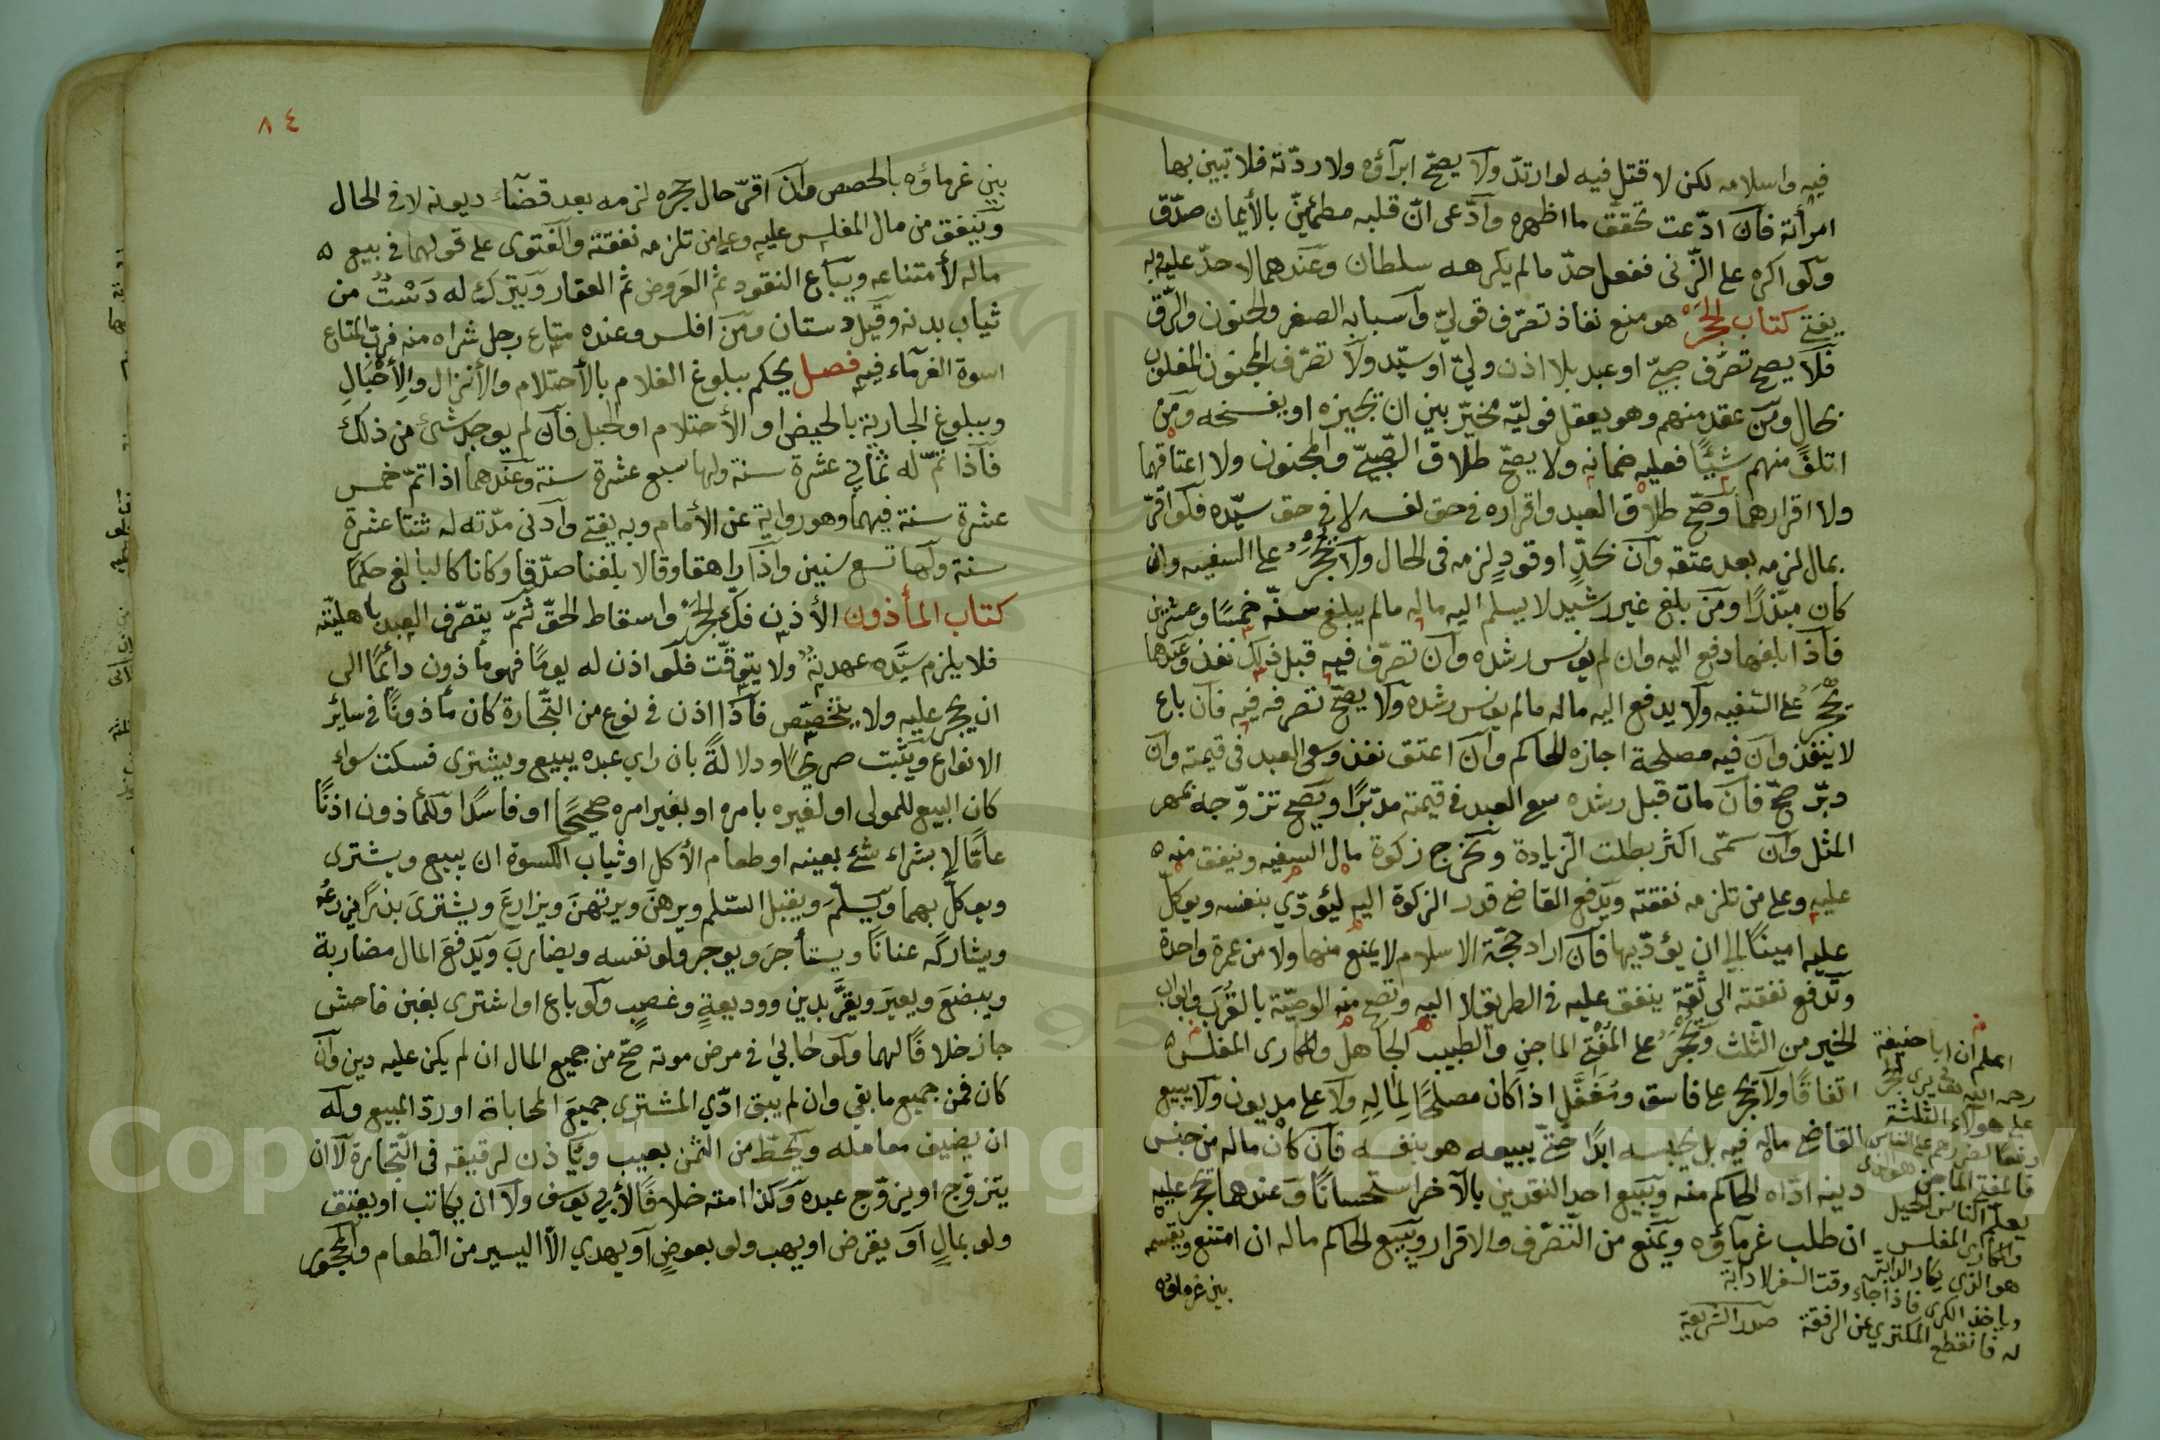 فيه واسلامه لكن لا قتل فيه لو ارتدّ ولا يصحّ ابرآؤه ولا ردّته فلا تبين بها
امرأته فان ادّعت تحقق ما اظهره وادّعى انّ قلبه مطمئنّ بالأيمان صدّق
ولو اكره على الزّنى ففعل حدّ ما لم يكرهه سلطان وعندهما لا حدّ عليه وبه
يفتى كتاب الحجر هو منع نفاذ تصرّف قوليّ واسبابه الصغر والجنون والرّق
فلا يصح تصرّف صبيّ او عبد بلا اذن وليّ او سيّد ولا تصرّف المجنون المغلوب
بحال ومن عقد منهم وهو يعقل فوليّه مخيّر بين ان يجيزه او يفسخه ومن
اتلف منهم شيئًا فعليه ضمانه ولا يصحّ طلاق الصّبيّ والمجنون ولا اعتاقهما
ولا اقرارهما وصحّ طلاق العبد واقراره في حق نفسه لا في حق سيّده فلو اقرّ
بمال لزمه بعد عتقه وان بحدّ او قود لزمه فى الحال ولا يحجر على السفيه وان
كان مبذرًا ومن بلغ غير رشيد لا يسلم اليه ماله ما لم يبلغ سنّه خمسًا وعشرين
فاذا بلغها دفع اليه وان لم يونس رشده وان تصرّف فيه قبل ذلك نفذ وعندهما
يحجر على السّفيه ولا يدفع اليه ماله ما لم يونس رشده ولا يصحّ تصرفه فيه فان باع
لا ينفذ وان فيه مصلحة اجازه الحاكم وان اعتق نفذ وسعى العبد فى قيمته وان
دبّر صحّ فان مات قبل رشده سعى العبد فى قيمته مدبّرًا ويصح تزوّجه بمهر
المثل وان سمّى اكثر بطلت الزّيادة وتخرج زكوة مال السفيه وينفق منه
عليه وعلى من تلزمه نفقته ويدفع القاضى قدر الزكوة اليه ليؤدّي بنفسه ويوكل
عليه امينًا الى ان يؤدّيها فان اراد حجّة الاسلام لا يمنع منها ولا من عمرة واحدة
وتدفع نفقته الى ثقة ينفق عليه فى الطريق لا اليه وتصح منه الوصيّة بالقُرَب وابواب
الخير من الثّلث ويحجر على المفتى الماجن والطبيب الجاهل والمكارى المفلس
اتفاقًا ولا يحجر على فاسق ومُغَفَّل اذا كان مصلحًا لِمَالِهِ ولا على مديون ولا يبيع
القاضى ماله فيه بل يحبسه ابدًا حتّى يبيعه هو بنفسه فان كان ماله من جنس
دينه ادّاه الحاكم منه ويبيع احد النقدين بالآخر استحسانًا وعندهما يحجر عليه
ان طلب غرمآؤه ويمنع من التّصرّف والاقرار ويبيع الحاكم ماله ان امتنع ويقسّمه
بين غرمائه
اعلم ان ابا حنيفة
رحمه الله يرى الحجر
على هولاء الثلثة
فالمفتى الماجن هو الذى
يعلّم الناس الحيل
والمكارى المفلس
هو الذي يكار الدابة
وياخذ الكرى فاذا جاء وقت السفر لا دابة
له فانقطع المكتري عن الرفقة صدر الشريعة
٨٤
بين غرماؤه بالحصص وان اقرّ حال حجره لزمه بعد قضآء ديونه لا فى الحال
وينفق من مال المفلس عليه وعلى من تلزمه نفقته والفتوى على قولهما فى بيع
ماله لأمتناعه ويباع النقود ثم العَروض ثم العقار ويترك له دَسْتٌ من
ثياب بدنه وقيل دستان ومن افلس وعنده متاع رجل شراه منه فربّ المتاع
اسوة الغرمآء فيه فصل يحكم ببلوغ الغلام بالأحتلام والأنزال والأحْبَالِ
وببلوغ الجارية بالحيض او الأحتلام او الحبل فان لم يوجد شئ من ذلك
فاذا تمّ له ثمانى عشرة سنة ولها سبع عشرة سنة وعندهما اذا تمّ خمس
عشرة سنة فيهما وهو رواية عن الأمام وبه يفتى وادنى مدّته له ثنتا عشرة
سنة ولها تسع سنين واذا راهقا وقالا بلغنا صدّقا وكانا كالبالغ حكمًا
كتاب المأذون الأذن فكّ الحجر واسقاط الحقّ ثمّ يتصرّف العبد باهليّته
فلا يلزم سيّده عهدته ولا يتوقّت فلو اذن له يومًا فهو مأذون دائمًا الى
ان يحجر عليه ولا يتخصّص فاذا اذن فى نوع من التّجارة كان مأذونًا فى سائر
الانواع ويثبت صريحًا ودلالةً بان راى عبده يبيع ويشترى فسكت سواء
كان البيع للمولى او لغيره بامره او بغير امره صحيحًا او فاسدًا وللمأذون اذنًا
عامًا لا بشراء شئ بعينه او طعام الأكل او ثياب الكسوة ان يبيع ويشترى
ويوكل بهما ويسلّم ويقبل السّلم ويرهنَ ويرتهنَ ويزارعَ ويشترىَ بذرًا يزرعُه
ويشاركَ عنانًا ويستأجرَ ويوجر ولو نفسه ويضاربَ ويدفعَ المال مضاربة
ويبضعَ ويعيرَ ويقرَّ بدين ووديعةٍ وغصبٍ ولو باع او اشترى بغبن فاحش
جاز خلافًا لهما ولو حابىٰ فى مرض موته صحّ من جميع المال ان لم يكن عليه دين وان
كان فمن جميع ما بقى وان لم يبق ادّي المشترى جميع المحاباة او ردّ المبيع وله
ان يضيف معامله ويحطّ من الثمن بعيب وياذن لرقيقه فى التّجارة لا ان
يتزوّج او يزوّج عبده وكذا امته خلافًا لأبي يوسف ولا ان يكاتب او يعتق
ولو بمالٍ او يقرض او يهب ولو بعوضٍ او يهدي الأّ اليسير من الطّعام والمحجور
Copyright © King Saud University